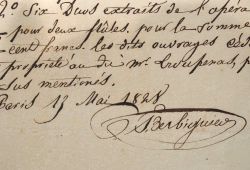 2o. Six Duos extraits de l'opera
pour deux flûtes, pour la somme
cent francs. les dits ouvrages cédé
propriété au dit mr. Troupenas, p
sus mentionés.
Paris 13 Mai 1828
Berbiguier